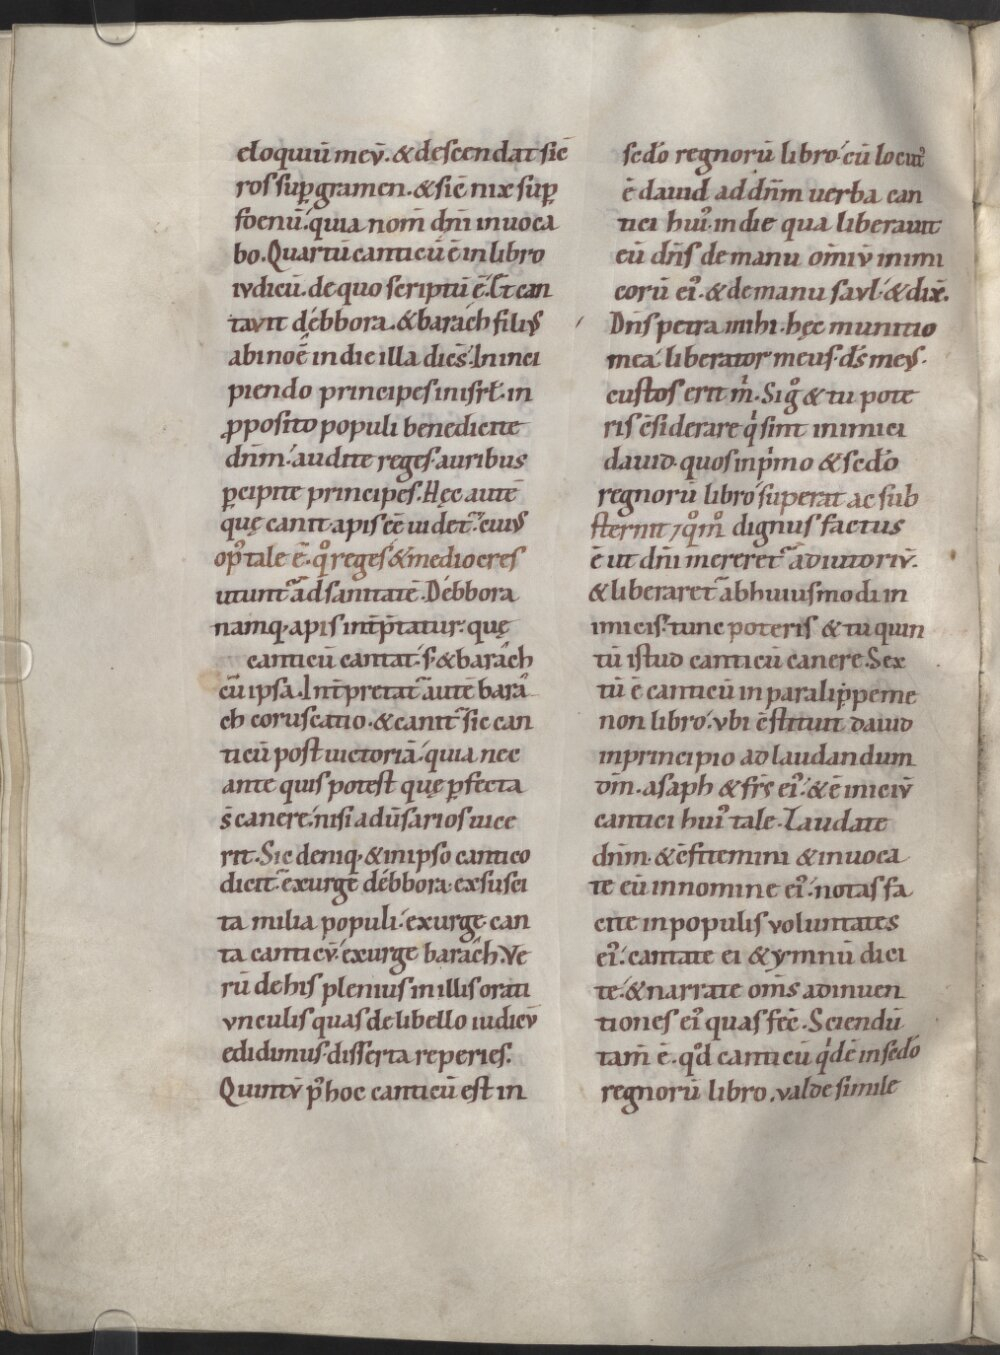 eloquiū meū. & descendat sic̄
ros sup̲ gramen. & sic̄ nix sup̲
foenū. quia nom̄ dn̄i inuoca
bo. Quartū canticū ē in libro
iudicū. de quo scriptū ē. Et can
tauit débbora. & barách filius
abinoē in die illa dicēs. In inci
piendo principes in isrł. in
p̲posito populi benedicite
dn̄m. audite reges. auribus
p̲cipite principes. Hęc autē
quę canit. apis eē uidet᷑. cuius
op᷒ tale ē. qͦ reges & mediocres
utunt᷑ ad sanitatē. Débbora
namq; apis int̄p̄tatur. quę
canticū cantat. s; & barách
cū ipsa. Int̄pretat᷑ autē bara
ch coruscatio. & canit᷑ sic can
ticū post uictoriā. quia nec
ante quis potest quę p̲fecta
s̄ canere. nisi aduīsarios uice
rit. Sic deniq; & in ipso cantico
dicit᷑. exurge débbora. exsusci
ta milia populi. exurge can
ta canticū. exurge barách. Ve
rū de his plenius in illis orati
unculis quas de libello iudicū
edidimus. disserta reperies.
Quintū p᷒ hoc canticū est in
scd̄o regnorū libro. cū locut᷒
ē dauid ad dn̄m uerba can
tici hui᷒. in die qua liberauit
eū dn̄s de manu om̄iū inimi
corū ei᷒. & de manu saul. & dix̄.
Dn̄s petra mihi. hęc munitio
mea. liberator meus. ds̄ meus.
custos erit m̍. Sigͦ & tu pote
ris c̄siderare qͥ sint inimici
dauid. quos in pͥmo & scd̄o
regnorū libro superat ac sub
sternit, ⁊ qͦmͦ dignus factus
ē ut dn̄i mereret᷑ adiutoriū.
& liberaret᷑ ab huiusmodi in
imicis. tunc poteris & tu quin
tū istud canticū canere. Sex
tū ē canticū in paralip̲peme
non libro. ubi c̄stituit dauid
in principio ad laudandum
dm̄. asaph & frs̄ ei᷒. & ē iniciū
cantici hui᷒ tale. Laudate
dn̄m. & c̄fitemini & inuoca
te eū in nomine ei᷒. notas fa
cite in populis uoluntates
ei᷒. cantate ei & ymnū dici
te. & narrate om̄s adinuen
tiones ei᷒ quas fec̄. Sciendū
tam̄ ē. qd̓ canticū qͥdē in scd̄o
regnorū libro, ualde simile